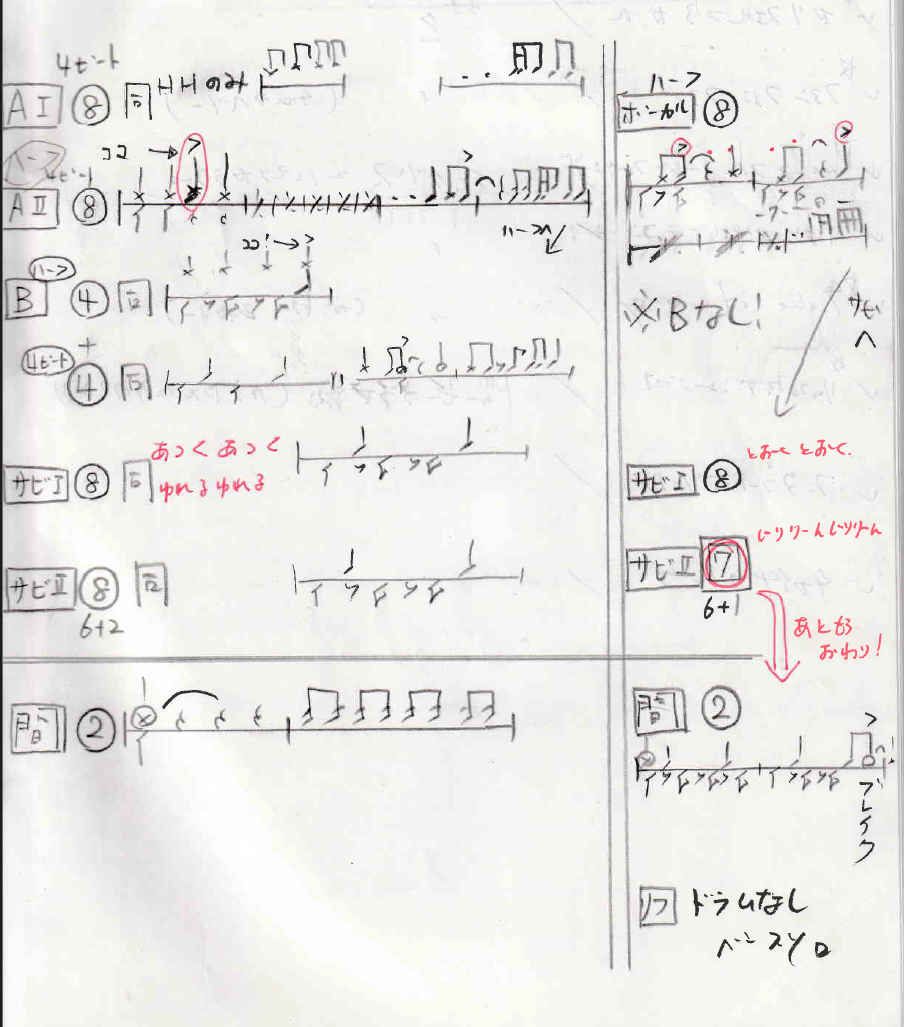 4ビート
AⅠ ⑧ HHのみ
ハーフ
ココ→ >
4ビート
AⅡ ⑧
ハーフへ
ハーフ ココ!→ >
B ④
+
4ビート
④
サビⅠ ⑧ あつく あつく
ゆれる ゆれる
サビⅡ ⑧
6+2
間 ②
ハーフ
ボーカル ⑧
※Bなし!
サビへ
サビⅠ ⑧ とおーく とおーく
サビⅡ ⑦
6+1
あともう
おわり!
間 ②
ブレイク
リフ ドラムなし
ベースソロ